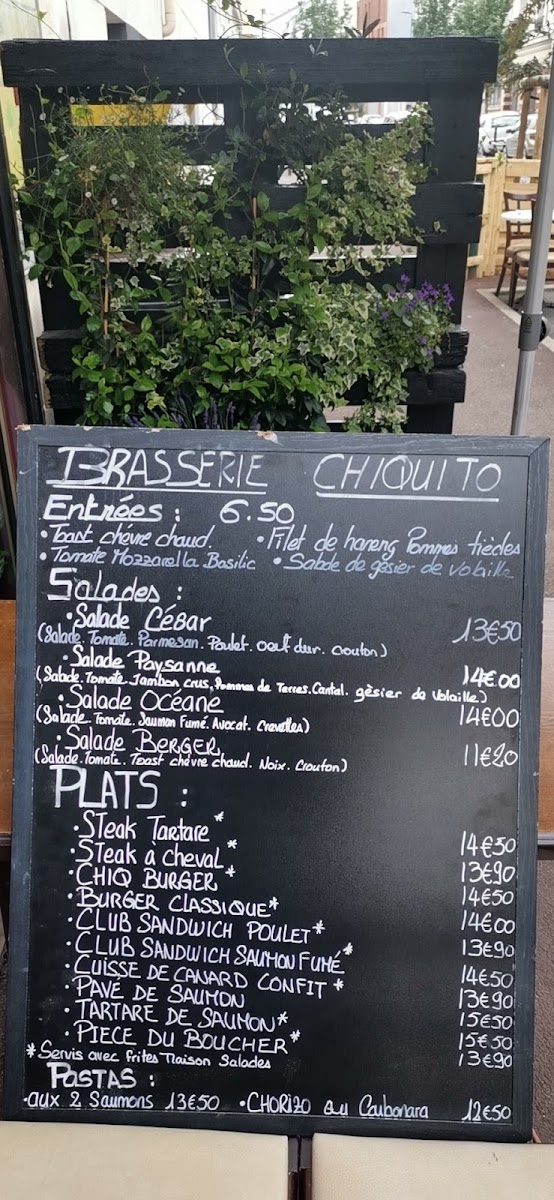 BRASSERIE CHIQUITO
Entrées : 6.50
• Toast chévre chaud • Filet de hareng Pommes tiédes
• Tomate Mozzarella Basilic • Salade de gésier de Volaille
Salades :
• Salade CÉSAR 13€50
(Salade. Tomate. Parmesan. Poulet. Oeuf dur. Crouton)
• Salade Paysanne 14€00
(Salade. Tomate. Jambon crus. Pommes de Terres. Cantal. gèsier de Volaille)
• Salade Océane 14€00
(Salade. Tomate. Saumon Fumé. Avocat. Crevettes)
• Salade BERGER 11€20
(Salade. Tomate. Toast chévre chaud. Noix. Crouton)
PLATS :
• STeak Tartare * 14€50
• STeak à cheval * 13€90
• CHIQ BURGER * 14€50
• BURGER CLASSIQUE * 14€00
• CLUB SANDWICH POULET * 13€90
• CLUB SANDWICH SAUMON FUMÉ * 14€50
• CUISSE DE CANARD CONFIT * 13€90
• PAVÉ DE SAUMON 15€50
• TARTARE DE SAUMON * 15€50
• PIECE DU BOUCHER * 13€90
* Servis avec Frites Maison Salades
PASTAS :
• aux 2 Saumons 13€50 • CHORIZO ou Carbonara 12€50